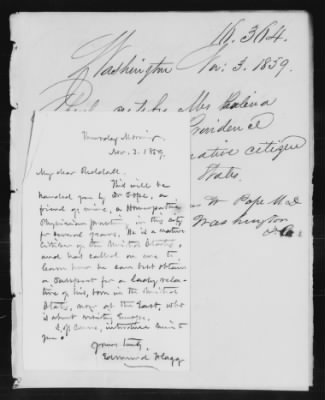 16.364.
Washington Nov: 3. 1859.
Mrs
Providence
native citizen
States.
Wm Pope M.D
Washington
D.C.
Thursday Morning
Nov. 3. 1859.
My dear
This will be
handed you by Dr Pope, a
friend of mine, a Homeopathic
Physician, in this city
for several years. He is a native
citizen of the United States,
and has called on me to
learn how he can best obtain
a Passport for a lady rela-
tive of his, born in the United
States, now at the East, who
is about visiting Europe.
introduce him to
you.
Yours truly,
Edmund Flagg